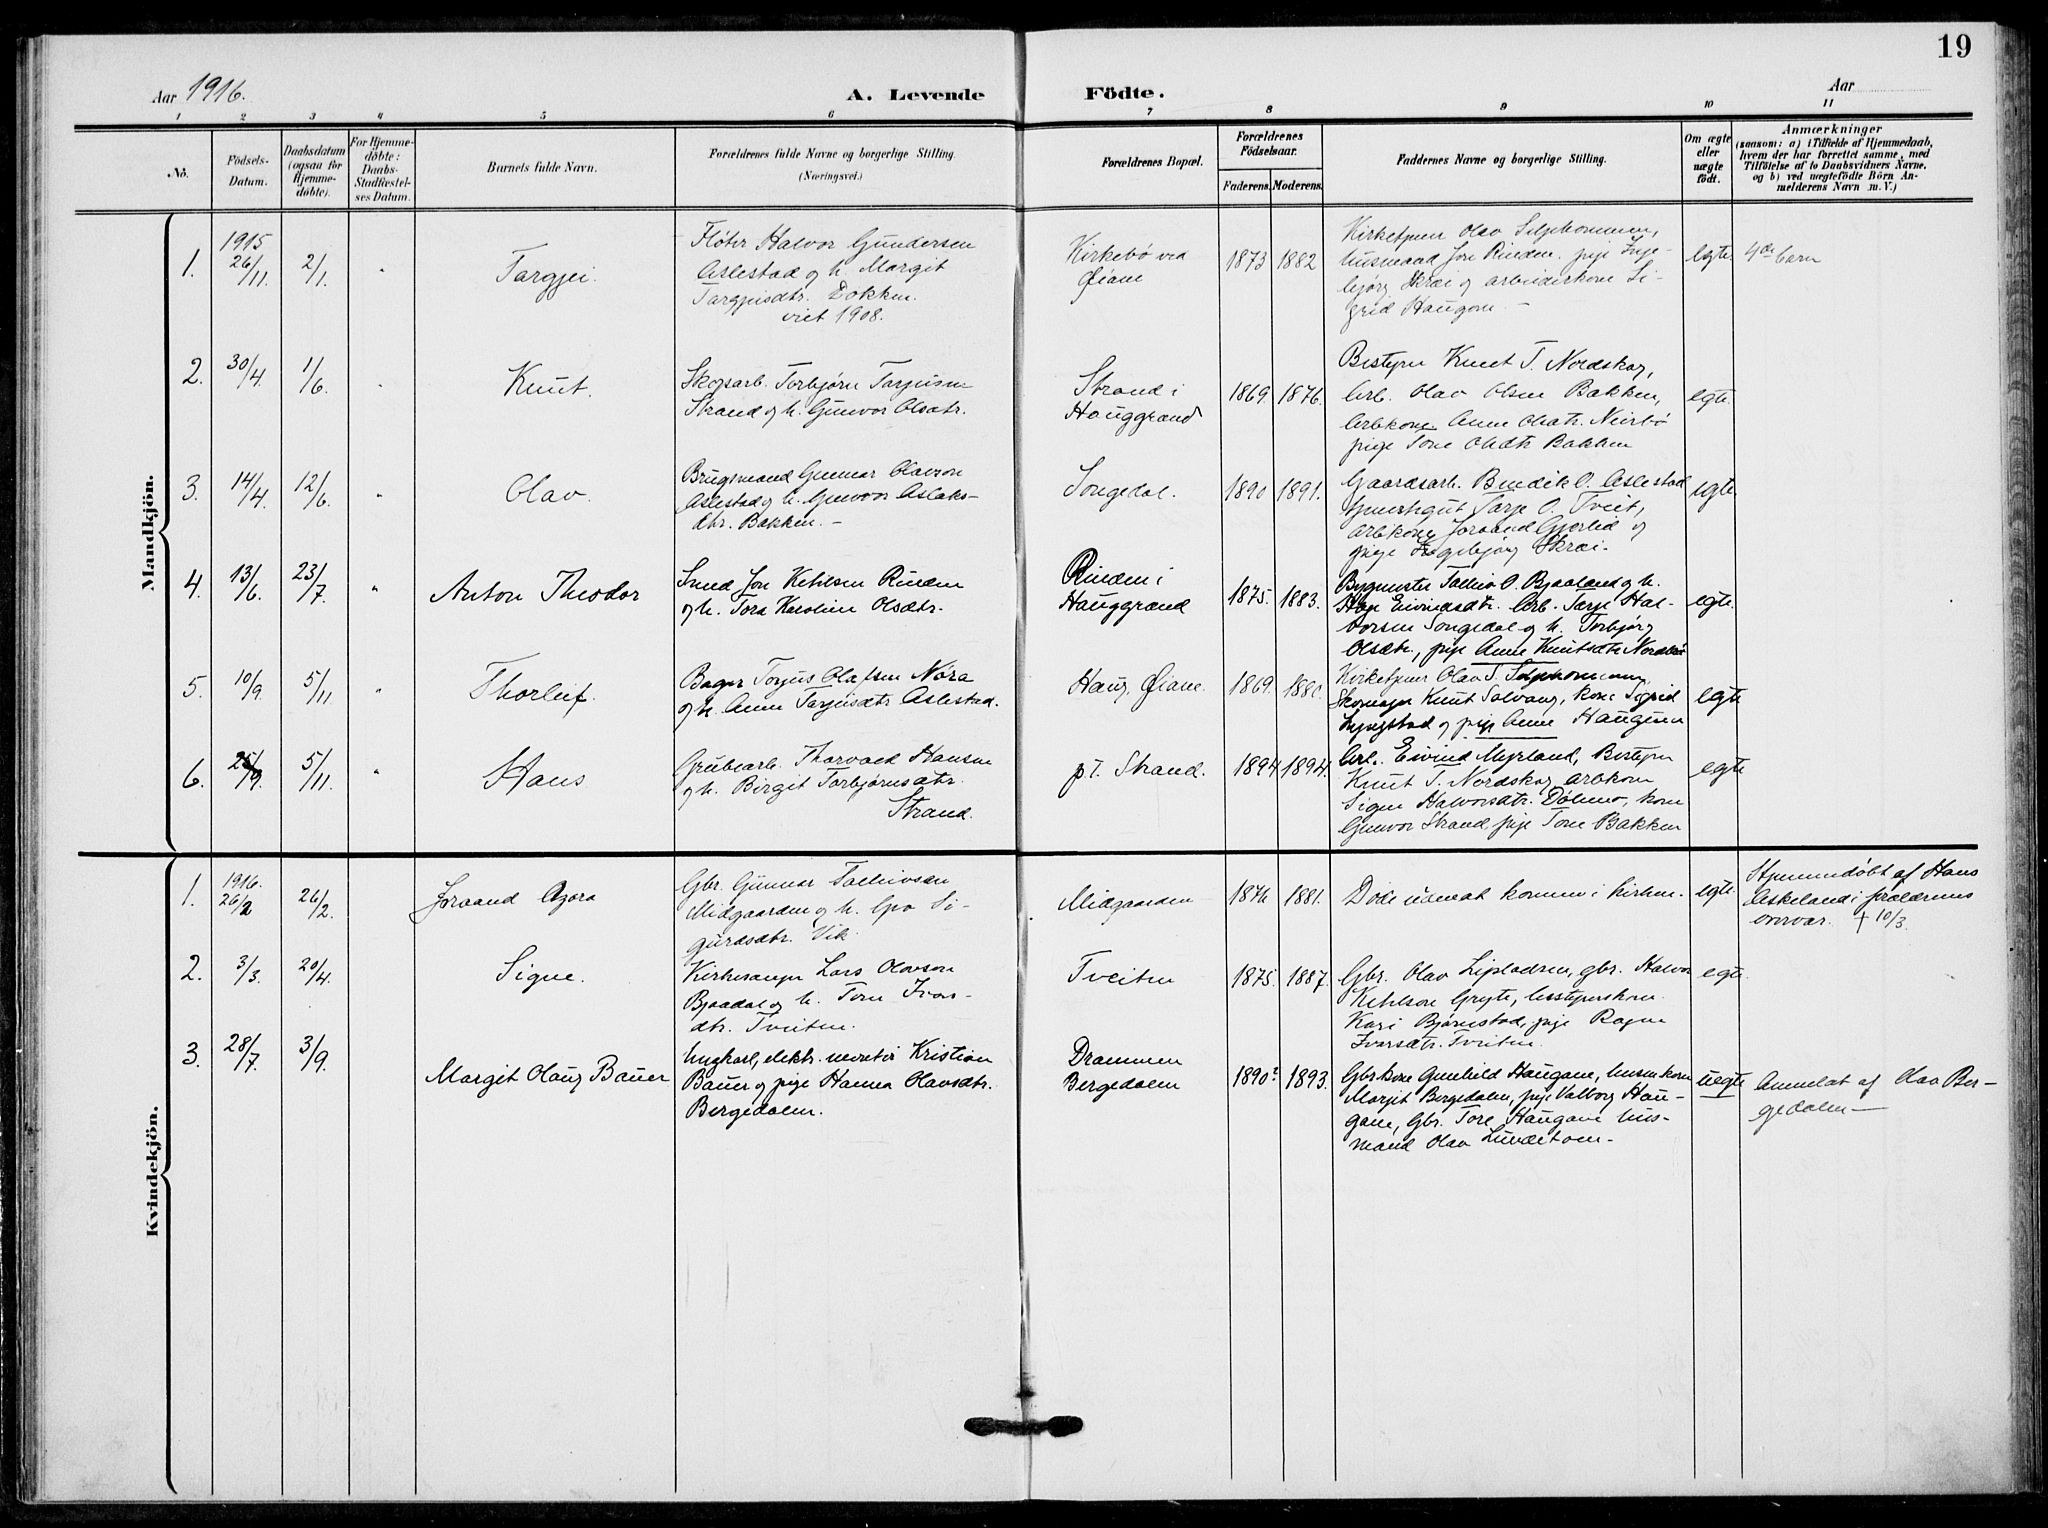 19
Aar 1916.
A. Levende Födte.
Aar
1 2 3 4 5 6 7 8 9 10 11
No.
Födsels-Datum.
Daabsdatum (ogsaa for Hjemme-döbte).
For Hjemme-döbte: Daabs-Stadfæstel-ses Datum.
Barnets fulde Navn.
Forældrenes fulde Navne og borgerlige Stilling.
(Næringsvei.)
Forældrenes Bopæl.
Forældrenes Födselsaar.
Faderens. Moderens.
Faddernes Navne og borgerlige Stilling.
Om ægte eller uægte födt.
Anmærkninger
(saasom: a) i Tilfælde af Hjemmedaab,
hvem der har forrettet samme, med
Tilföielse af to Daabsvidners Navne.
og b) ved uægtefödte Börn An-
melderens Navn m. V.)
Mandkjön.
1. 1915 26/11. 2/1. " Targjei.
Fløter Halvor Gundersen
Aslestad og h. Margit
Targjeisdtr. Dokken.
viet 1908.
Kirkebö ved
Øiane
1873 1882
Kirketjener Olav
husmand Jon Rinden. pije Inge-
bjørg Skrei og arbeiderkone Si-
grid Haugom –
egte. 4de barn
2. 30/4. 1/6. " Knut.
Skogsarb. Torbjørn Tarjeisen
Strand og h. Gunvor Olsdtr.
Strand i
Hauggrand
1869. 1876.
Bestyrer Knut T. Nordskog,
Arb. Olav Olsen Bakken,
Arbkone Anne Olsdtr. Neirbö
pige Tone Olsdtr Bakken
egte.
3. 14/4. 12/6. " Olav.
Brugsmand Gunnar Olavson
Aslestad og h. Gunvor Aslaks-
dtr. Bakken. –
Songedal.
1890 1891.
Gaardsarb. Bendik O. Aslestad
Tarje O. Tveit,
arbkone Joraand Gjerlid og
pige Ingebjörg Skrei.
egte.
4. 13/6. 23/7. " Anton Theodor
Smed Jon Ketilsen Rinden
og h. Tora Karoline Olsdtr.
Rinden i
Hauggrand
1875. 1883.
Bygmester Talleiv O. Bjaaland og h.
Eivindsdtr. Arb. Tarje Hal-
vorsen Songedal og h. Torbjørg
Olsdtr., pige Anne Knutsdtr Nordskog
egte.
5. 10/9. 5/11 " Thorleif.
Bager Torjus Olafsen Nøra
og h. Anne Tarjeisdtr Aslestad.
Haug, Øiane.
1869. 1880.
Kirketjener Olav T.
Skomager Knut Solvang, kone Sigrid
og pige Anne Haugum
egte
6. 25/9. 5/11. " Hans
Grubearb. Thorvald Hansen
og h. Birgit Torbjørnsdtr.
Strand.
p.t. Strand.
1894 1894.
Arb. Eivind Myrland, Bestyrer
Knut T. Nordskog, arbkone
Signe Halvorsdtr. Dölemo, kone
Gunvor Strand, pige Tone Bakken
egte
Kvindekjön.
1. 1916. 26/2 26/2. Joraand Agora
Gbr. Gunnar Talleivsen
Midgaarden og h. Gro Si-
gurdsdtr. Vik.
Midgaarden
1876 1881.
Döde uden at komme i kirken.
egte.
Hjemmedøbt af Hans
Askeland i forældrenes
overvær. + 10/3.
2. 3/3. 20/4. Signe.
Kirkesanger Lars Olavson
Bjaadal og h. Tone Ivars-
dtr. Tveiten.
Tveiten
1875. 1887.
Gbr. Olav Liplodsen, gbr. Halvor
Ketilson Gryte, bestyrerkone
Kari Bjørnestad, pige Ragne
Ivarsdtr. Tveiten.
egte.
3. 28/7. 3/9. Margit Olaug Bauer
Ungkarl, elektr. montør Kristian
Bauer og pige Hanna Olavsdtr.
Bergedalen.
Drammen
Bergedalen
1890? 1893.
Gbrkone Gunhild Haugane, husm.kone
Margit Bergedalen, pige Valborg Hau-
gane, Gbr. Tore Haugane hus-
mand Olav Lundetom.
uegte
Anmeldt af Olav Ber-
gedalen –